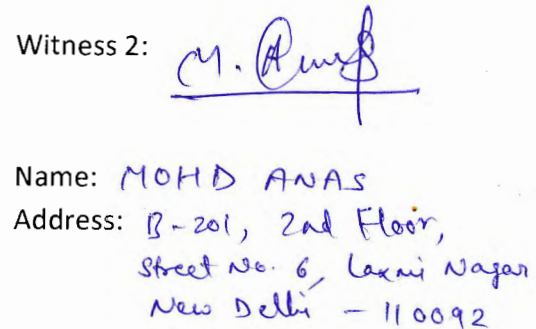 Witness 2: M. Anas
Name: MOHD ANAS
Address: B-201, 2nd Floor,
Street No. 6, Laxmi Nagar
New Delhi - 110092